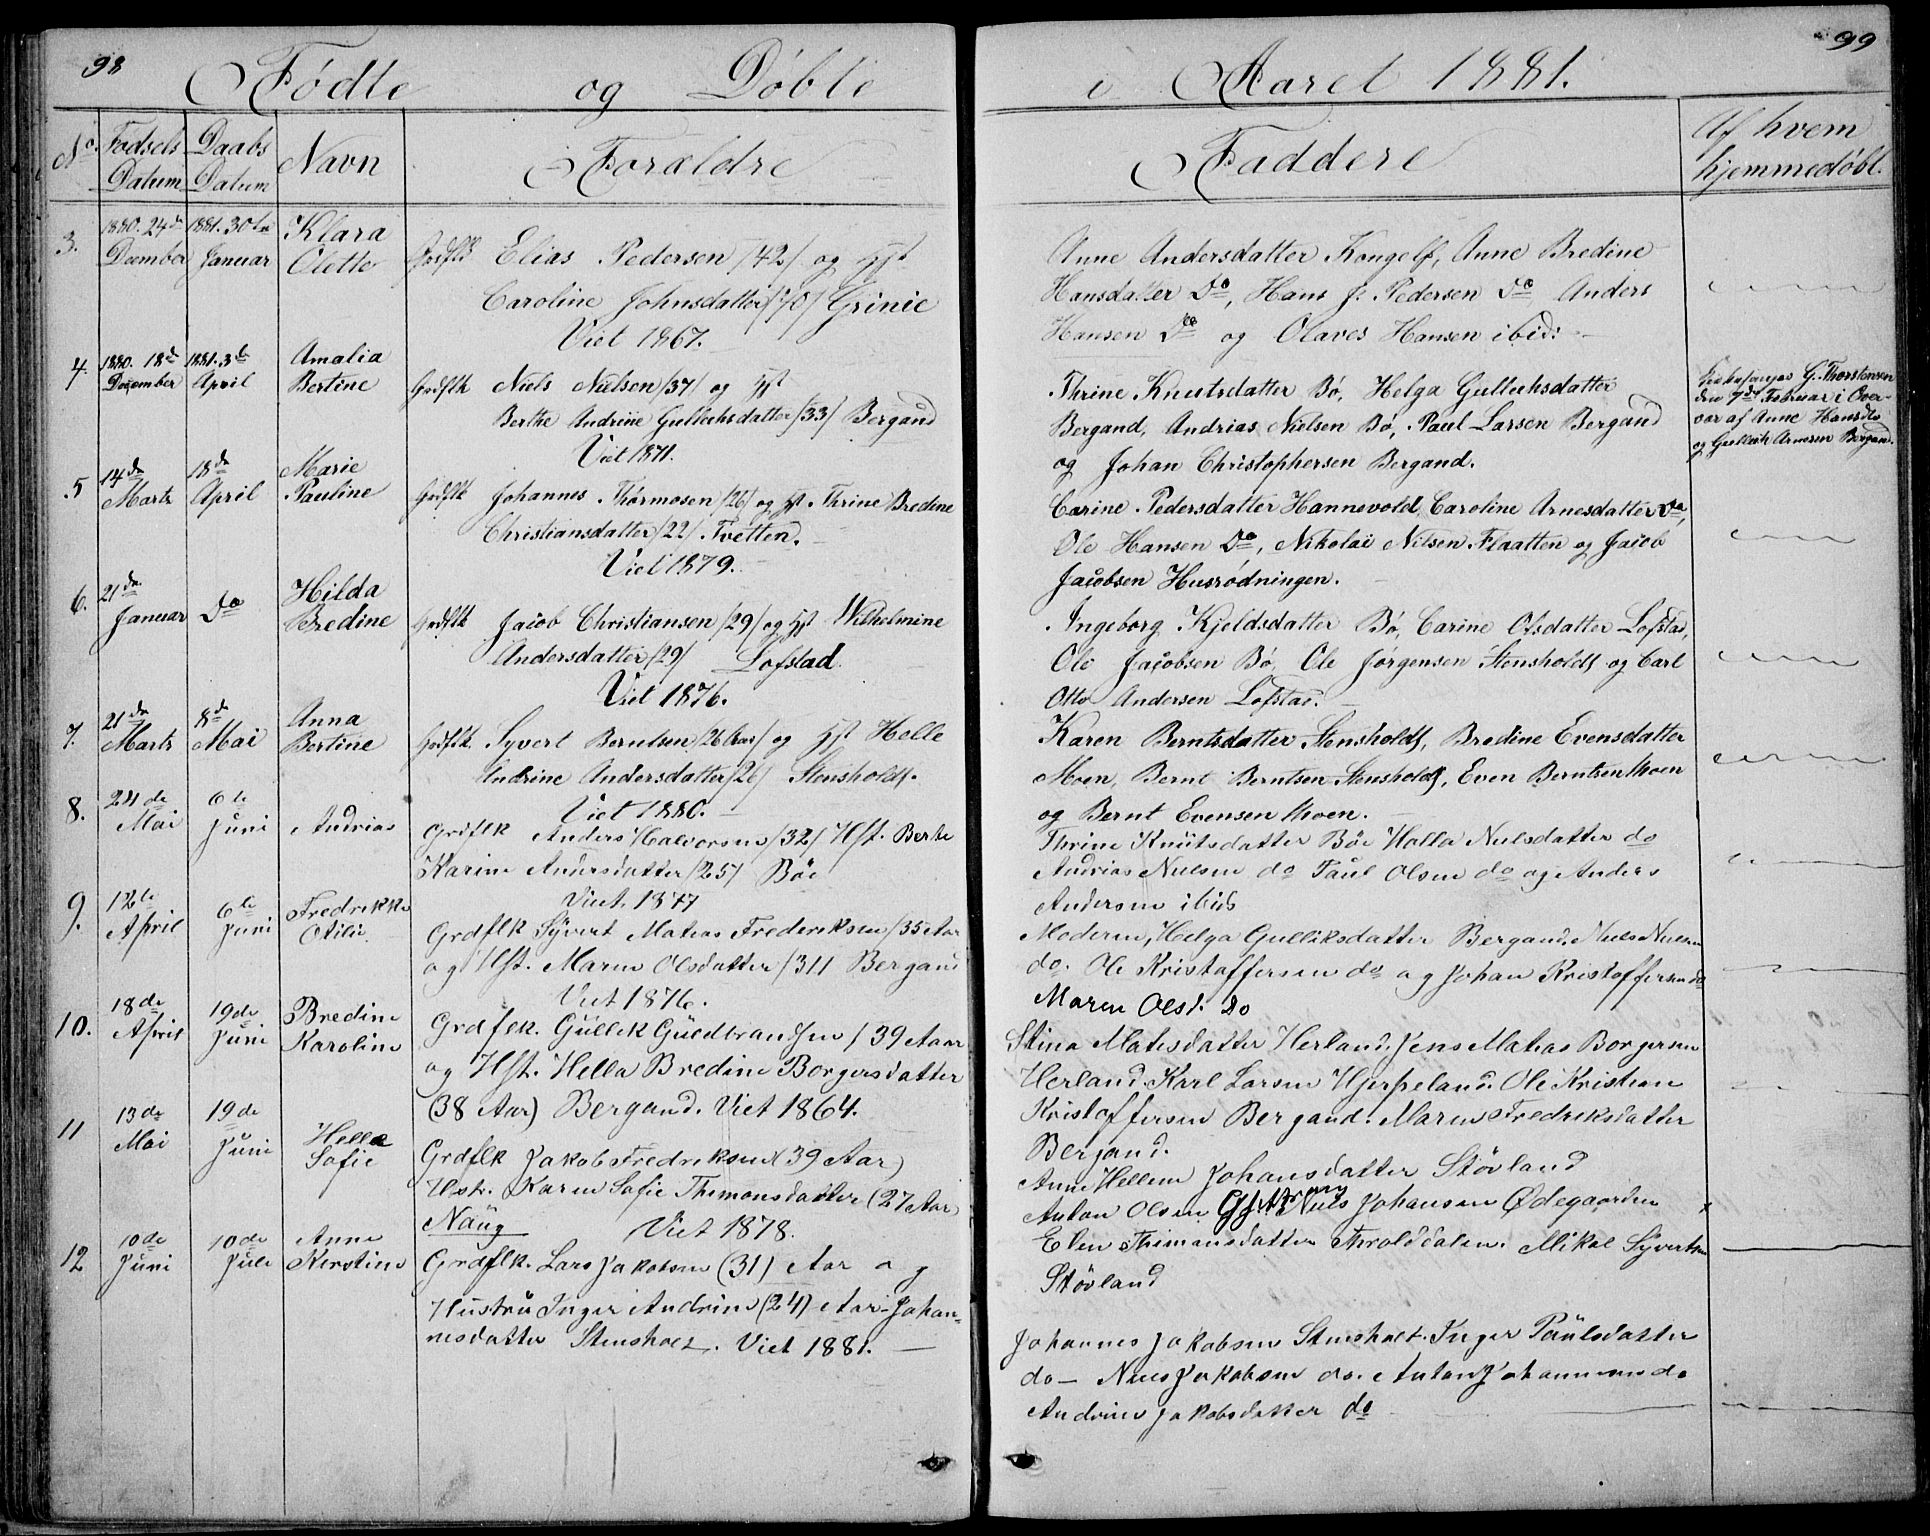 98
Fødte og Døbte
No.
Fødsels Datum
Daabs Datum
Navn
Forældre
3. 1880. 24de December 1881. 30te Januar Klara Olette Grdflk Elias Pedersen /42/ og Hst
Caroline Johnsdatter /40/ Grinie
Viet 1867.
4. 1880. 18de December 1881. 3de April Amalia Bertine Grdflk Niels Nielsen /37/ og Hst
Berthe Andrine Gulliksdatter /33/ Bergand
Viet 1871.
5. 14de Marts 18de April Marie Pauline Grdflk Johannes Thormosen /26/ og Hst. Thrine Bredine
Christiansdatter /22/ Tvetten.
Viet 1879.
6. 21de Januar Do Hilda Bredine Grdflk Jacob Christiansen /29/ og Hst Wilhelmine
Andersdatter /29/ Lofstad.
Viet 1876.
7. 21de Marts 8de Mai Anna Bertine Grdflk Syvert Berntsen /26 Aar/ og Hst Helle
Andrine Andersdatter /26/ Stensholdt.
Viet 1880.
8. 24de Mai 6te Juni Andrias Grdflk Anders Halvorsen /32/ Hst. Berte
Karine Andersdatter /25/ Bøe
Viet 1877
9. 12te April 6te Juni Fredrikke Otilie Grdflk Syvert Matias Frederiksen /35 Aar
og Hst. Maren Olsdatter /31/ Bergand
Viet 1876.
10. 18de April 19de Juni Bredine Karoline Grdflk. Gullik Guldbrandsen /39 Aar
og Hst. Hella Bredine Borgersdatter
(38 Aar) Bergand. Viet 1864.
11 13de Mai 19de Juni Hella Sofie Grdflk Jakob Fredriksen (39 Aar)
Hstr. Karen Sofie Thimonsdatter (27 Aar)
Naug Viet 1878.
12 10de Juni 10de Juli Anne Kirstine Grdflk. Lars Jakobsen (31) Aar og
Hustru Inger Andrine (24) Aar Johan-
nesdatter Stensholt. Viet 1881.
99
i Aaret 1881.
Faddere
Af hvem hjemmedøbt.
Anne Andersdatter Kongelf, Anne Bredine
Hansdatter Do, Hans J. Pedersen Do Anders
Hansen Do og Olaves Hansen ibid:
Thrine Knutsdatter Bø, Helga Gulliksdatter
Bergand, Andrias Nielsen Bø, Paul Larsen Bergand
og Johan Christophersen Bergand.
Kirkesanger G. Thorstensen
den 7de Februar i Over-
vær af Anne Hansdtr
og Gullik Arnesen Bergand.
Carine Pedersdatter Hannevold, Caroline Arnesdatter Do,
Ole Hansen Do, Nikolai Nilsen Flaatten og Jacob
Jacobsen Husrødningen.
Ingeborg Kjeldsdatter Bø, Carine Olsdatter Lofstad,
Ole Jacobsen Bø, Ole Jørgensen Stensholdt og Carl
Otto Andersen Lofstad.
Karen Berntsdatter Stensholdt, Bredine Evensdatter
Moen, Bernt Berntsen Stensholdt, Even Berntsen Moen
og Bernt Evensen Moen.
Thrine Knutsdatter Bøe Halla Nielsdatter do
Andrias Nielsen do Paul Olsen do og Anders
Andersen ibid
Moderen, Helga Gulliksdatter Bergand. Niels Nielsen
do. Ole Kristoffersen do og Johan Kristoffersen do
Maren Olsd. Do
Stina Matisdatter Herland. Jens Matias Borgersen
Herland. Karl Larsen Hjerpeland. Ole Kristian
Kristoffersen Bergand. Maren Fredriksdatter
Bergand.
Anne Hellene Johansdatter Støvland
Anton Olsen Niels Johansen Ødegaarden
Elen Thimansdatter Trolddalen. Mikal Syvertsen
Støvland
Johannes Jakobsen Stensholt. Inger Paulsdatter
do – Niels Jakobsen do. Anton Johannesen do
Andrine Jakobsdatter do